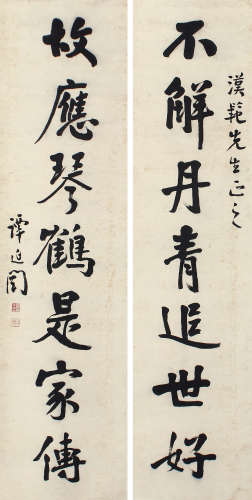 不解丹青追世好
漢髡先生正之
故應琴鶴是家傳
譚延闓